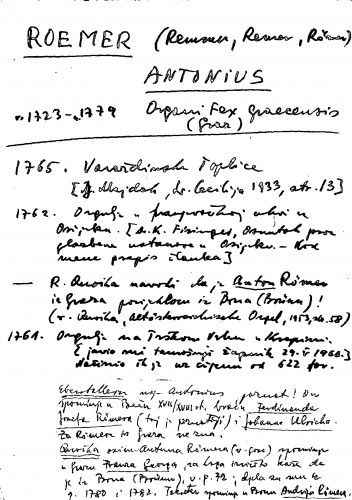 ROEMER (Remmer, Remer, Römer)
ANTONIUS
1723-1779 Organi Fex Graecensis
(Graz)
1765. Varaždinske Toplice
[J. Majdak, Sv. Cecilija 1933, str. 13]
1762. Orgulje u franjevačkoj crkvi u
Osijeku. [Dr. K. Firinger, Osnutak prve
glazbene ustanove u Osijeku. - Kod
mene prepis članka]
— R. Quoika navodi da je Anton Römer
iz Graza porijeklom iz Brna (Brünn)!
(v. Quoika, Altösterreichische Orgel, 1953, str. 58)
1761. Orgulje na Trškom Vrhu u Krapini.
[javio mi tamošnji župnik 29. 1960.]
iz cijenu od 622 for.
Eberstaller Antonius poznat! On
spominje u Beču XVII/XVIII st. braću Ferdinanda
Josefa Römera (taj je poznatiji) i Johanna Ulricha.
Za Römera iz Graza ne zna.
Quoika osim Antuna Römera (v. gore) spominje
u Grazu Franza Georga, za koga isto kaže da
je iz Brna (Brünn), v. p. 72; djela su mu iz
g. 1780 i 1782. Također spominje u Brnu Andriju Römera.